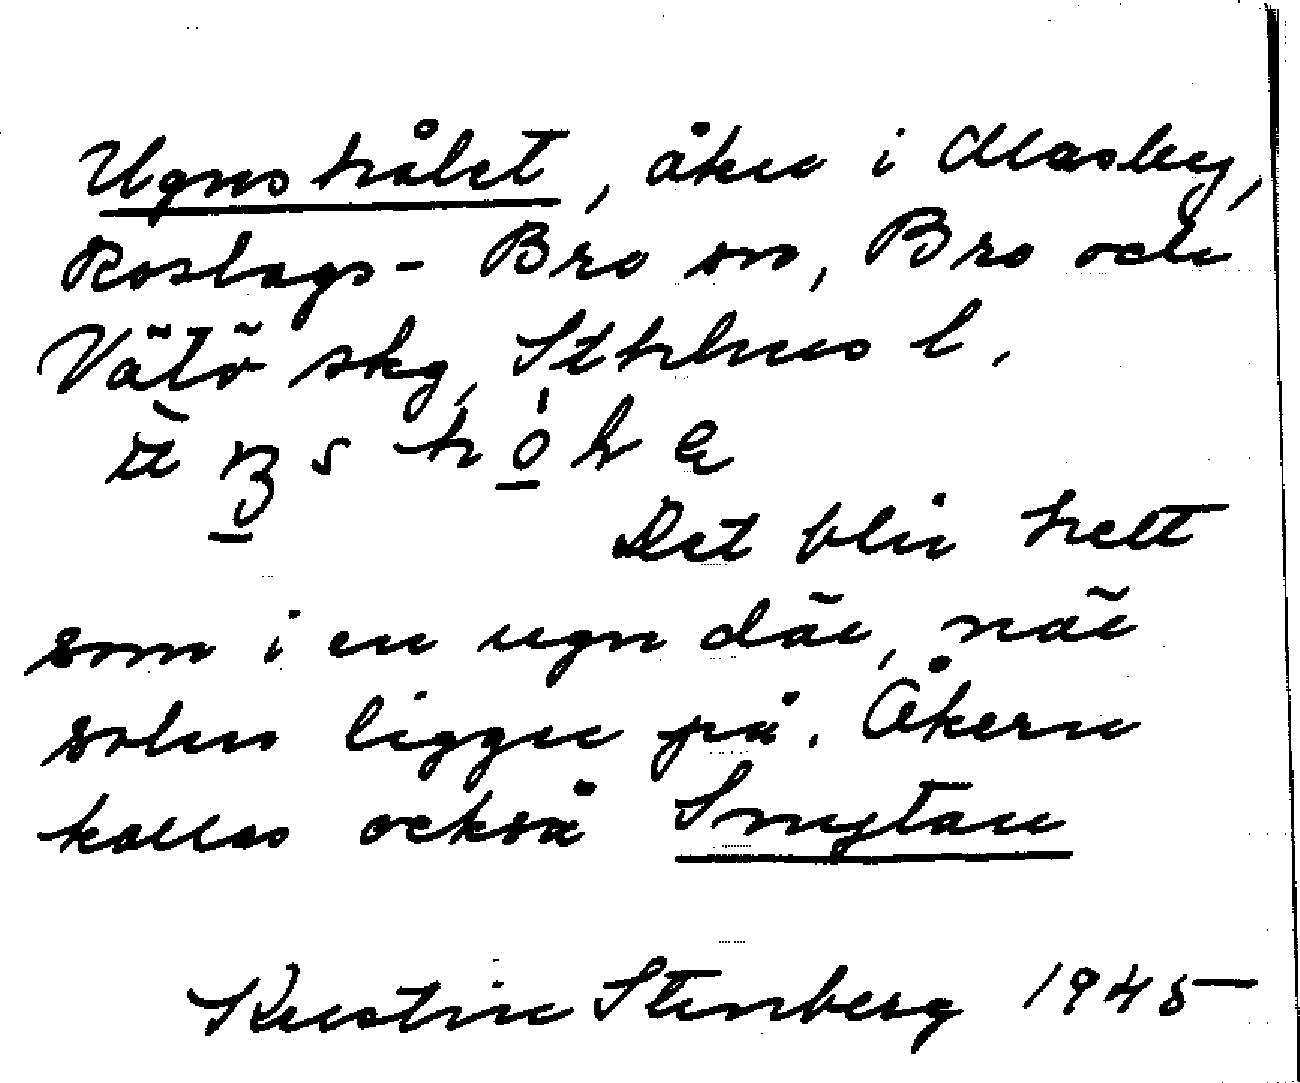 Ugnshålet, åker i Masby,
Roslags-Bro sn, Bro och
Vätö skg, Sthlms l.
Det blir hett
som i en ugn där, när
solen ligger på. Åkern
kallas också Smytan
Kerstin Stenberg 1945